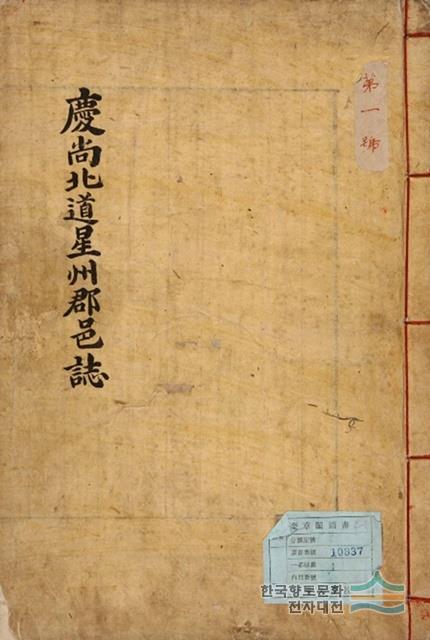 第一號
慶尚北道星州郡邑誌
奎章閣圖書
10837
1
한국향토문화
전자대전